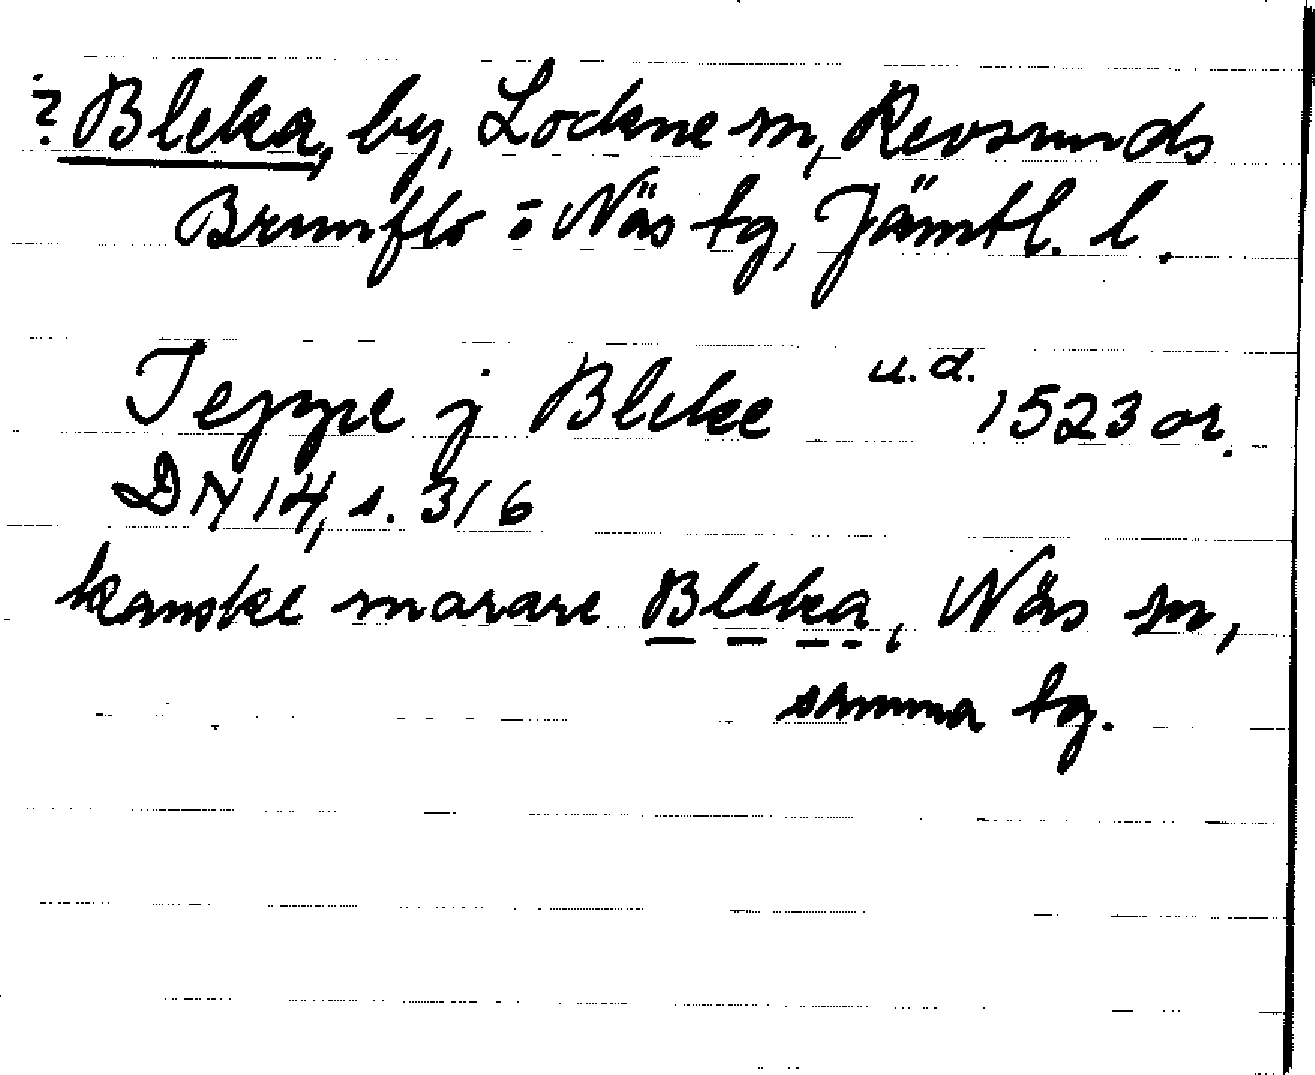 ? Bleka, by, Lockne sn, Revsunds
Brunflo o Näs tg, Jämtl. l.
Jeppe j Bleke u.d. 1523 or.
DN 14, s. 316
kanske snarare Bleka, Näs sn,
samma tg.